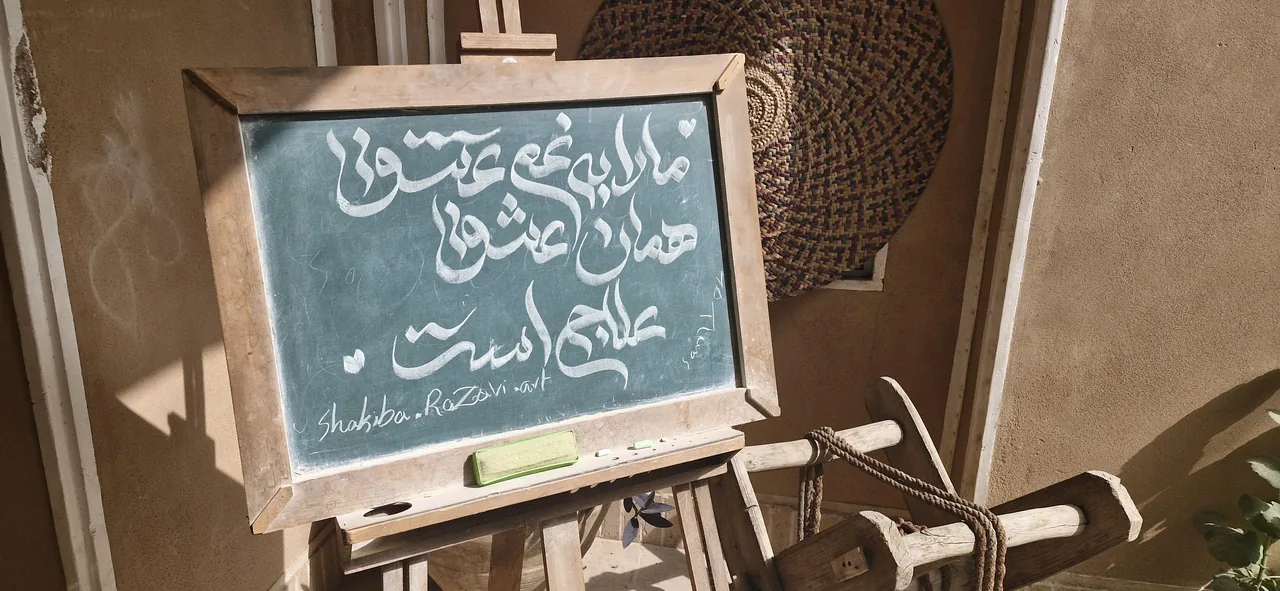 ما را به غم عشق
همان عشق
علاج است
Shakiba.Razavi.art